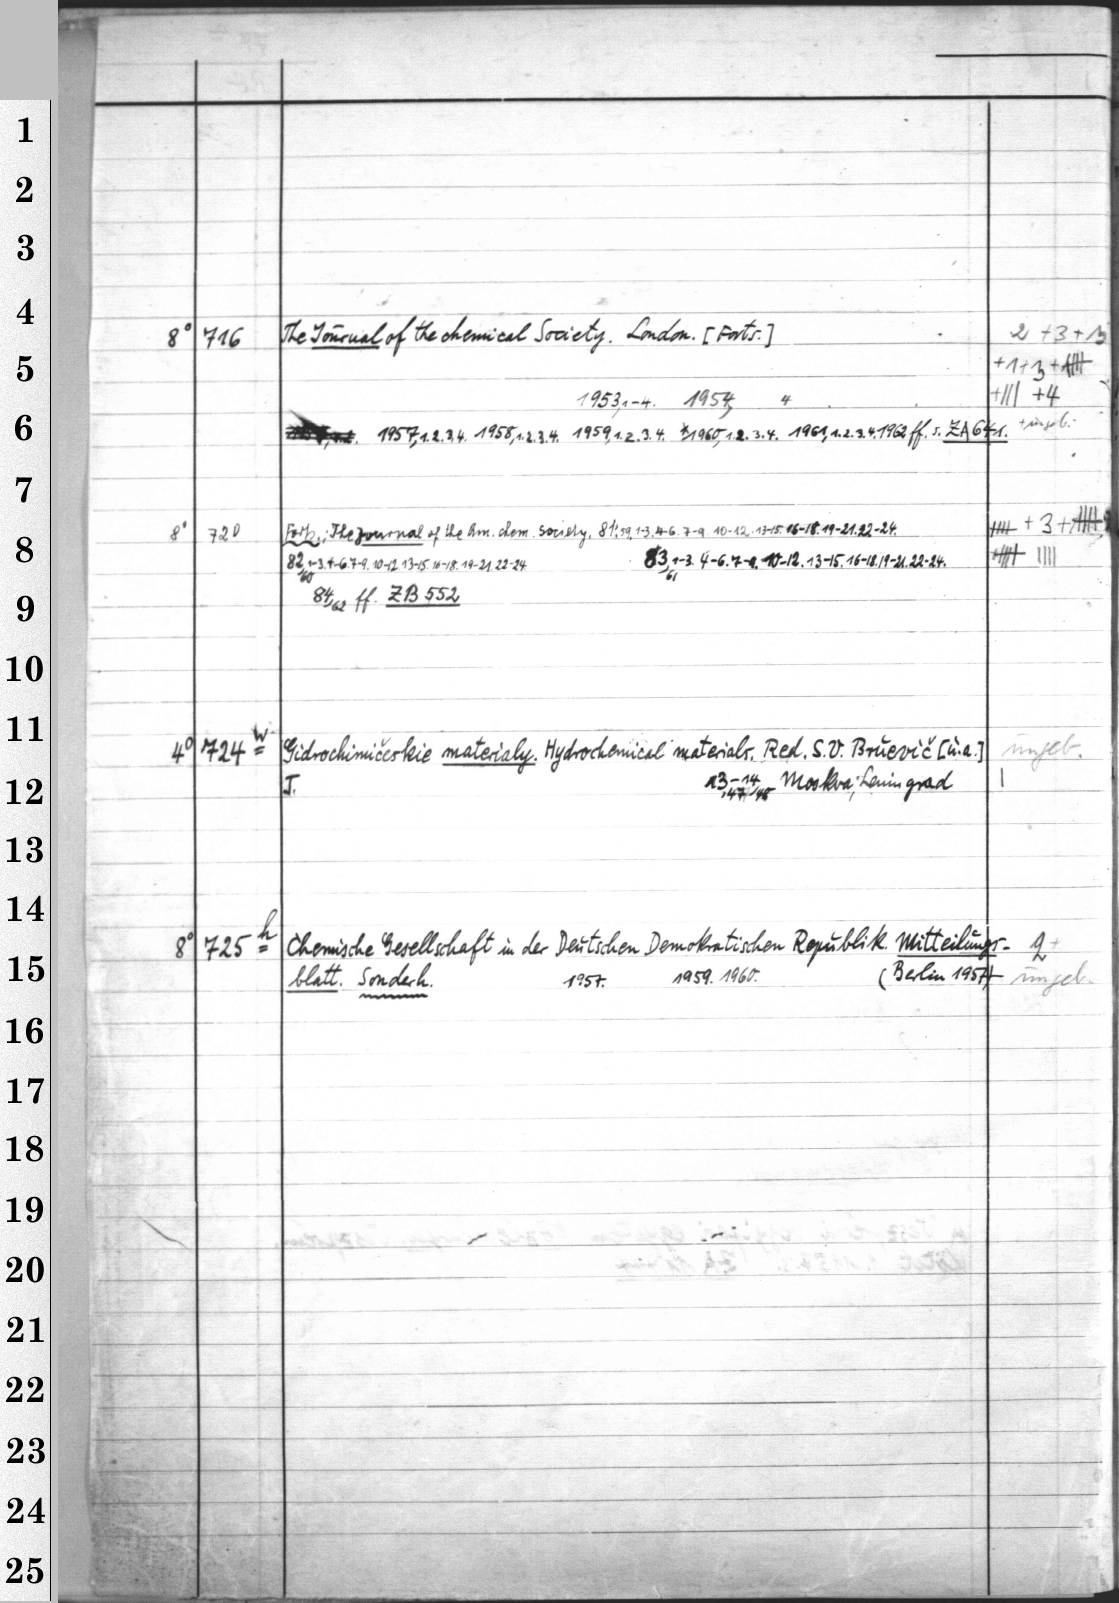 1
2
3
4
8° 716 The Journal of the chemical Society. London. [Forts.] 2 + 3 + 13
5
+1+3+卌
1953,1-4. 1954, 4 +||| +4
6
1957,1.2.3.4. 1958,1.2.3.4. 1959,1.2.3.4. 1960,1.2.3.4. 1961,1.2.3.4. 1962 ff. s. ZA 641.
7
8° 720 Forts.: The Journal of the Am. chem. Society, 81,59,1-3.4-6.7-9.10-12.13-15.16-18.19-21.22-24. 卌 + 3 + 卌
8
82,60 1-3.4-6.7-9.10-12.13-15.16-18.19-21.22-24 83,61 1-3.4-6.7-9.10-12.13-15.16-18.19-21.22-24. +卌 ||||
84,62 ff. ZB 552
9
10
11
4° 724 w Gidrochimičeskie materialy. Hydrochemical materials. Red. S.V. Bruevič [u.a.] ungeb.
12
I. 13-14 ,47/48 Moskva; Leningrad |
13
14
8° 725 h Chemische Gesellschaft in der Deutschen Demokratischen Republik. Mitteilungs- 2 +
15
blatt. Sonderh. 1957. 1959. 1960. (Berlin 1957) ungeb.
16
17
18
19
20
21
22
23
24
25